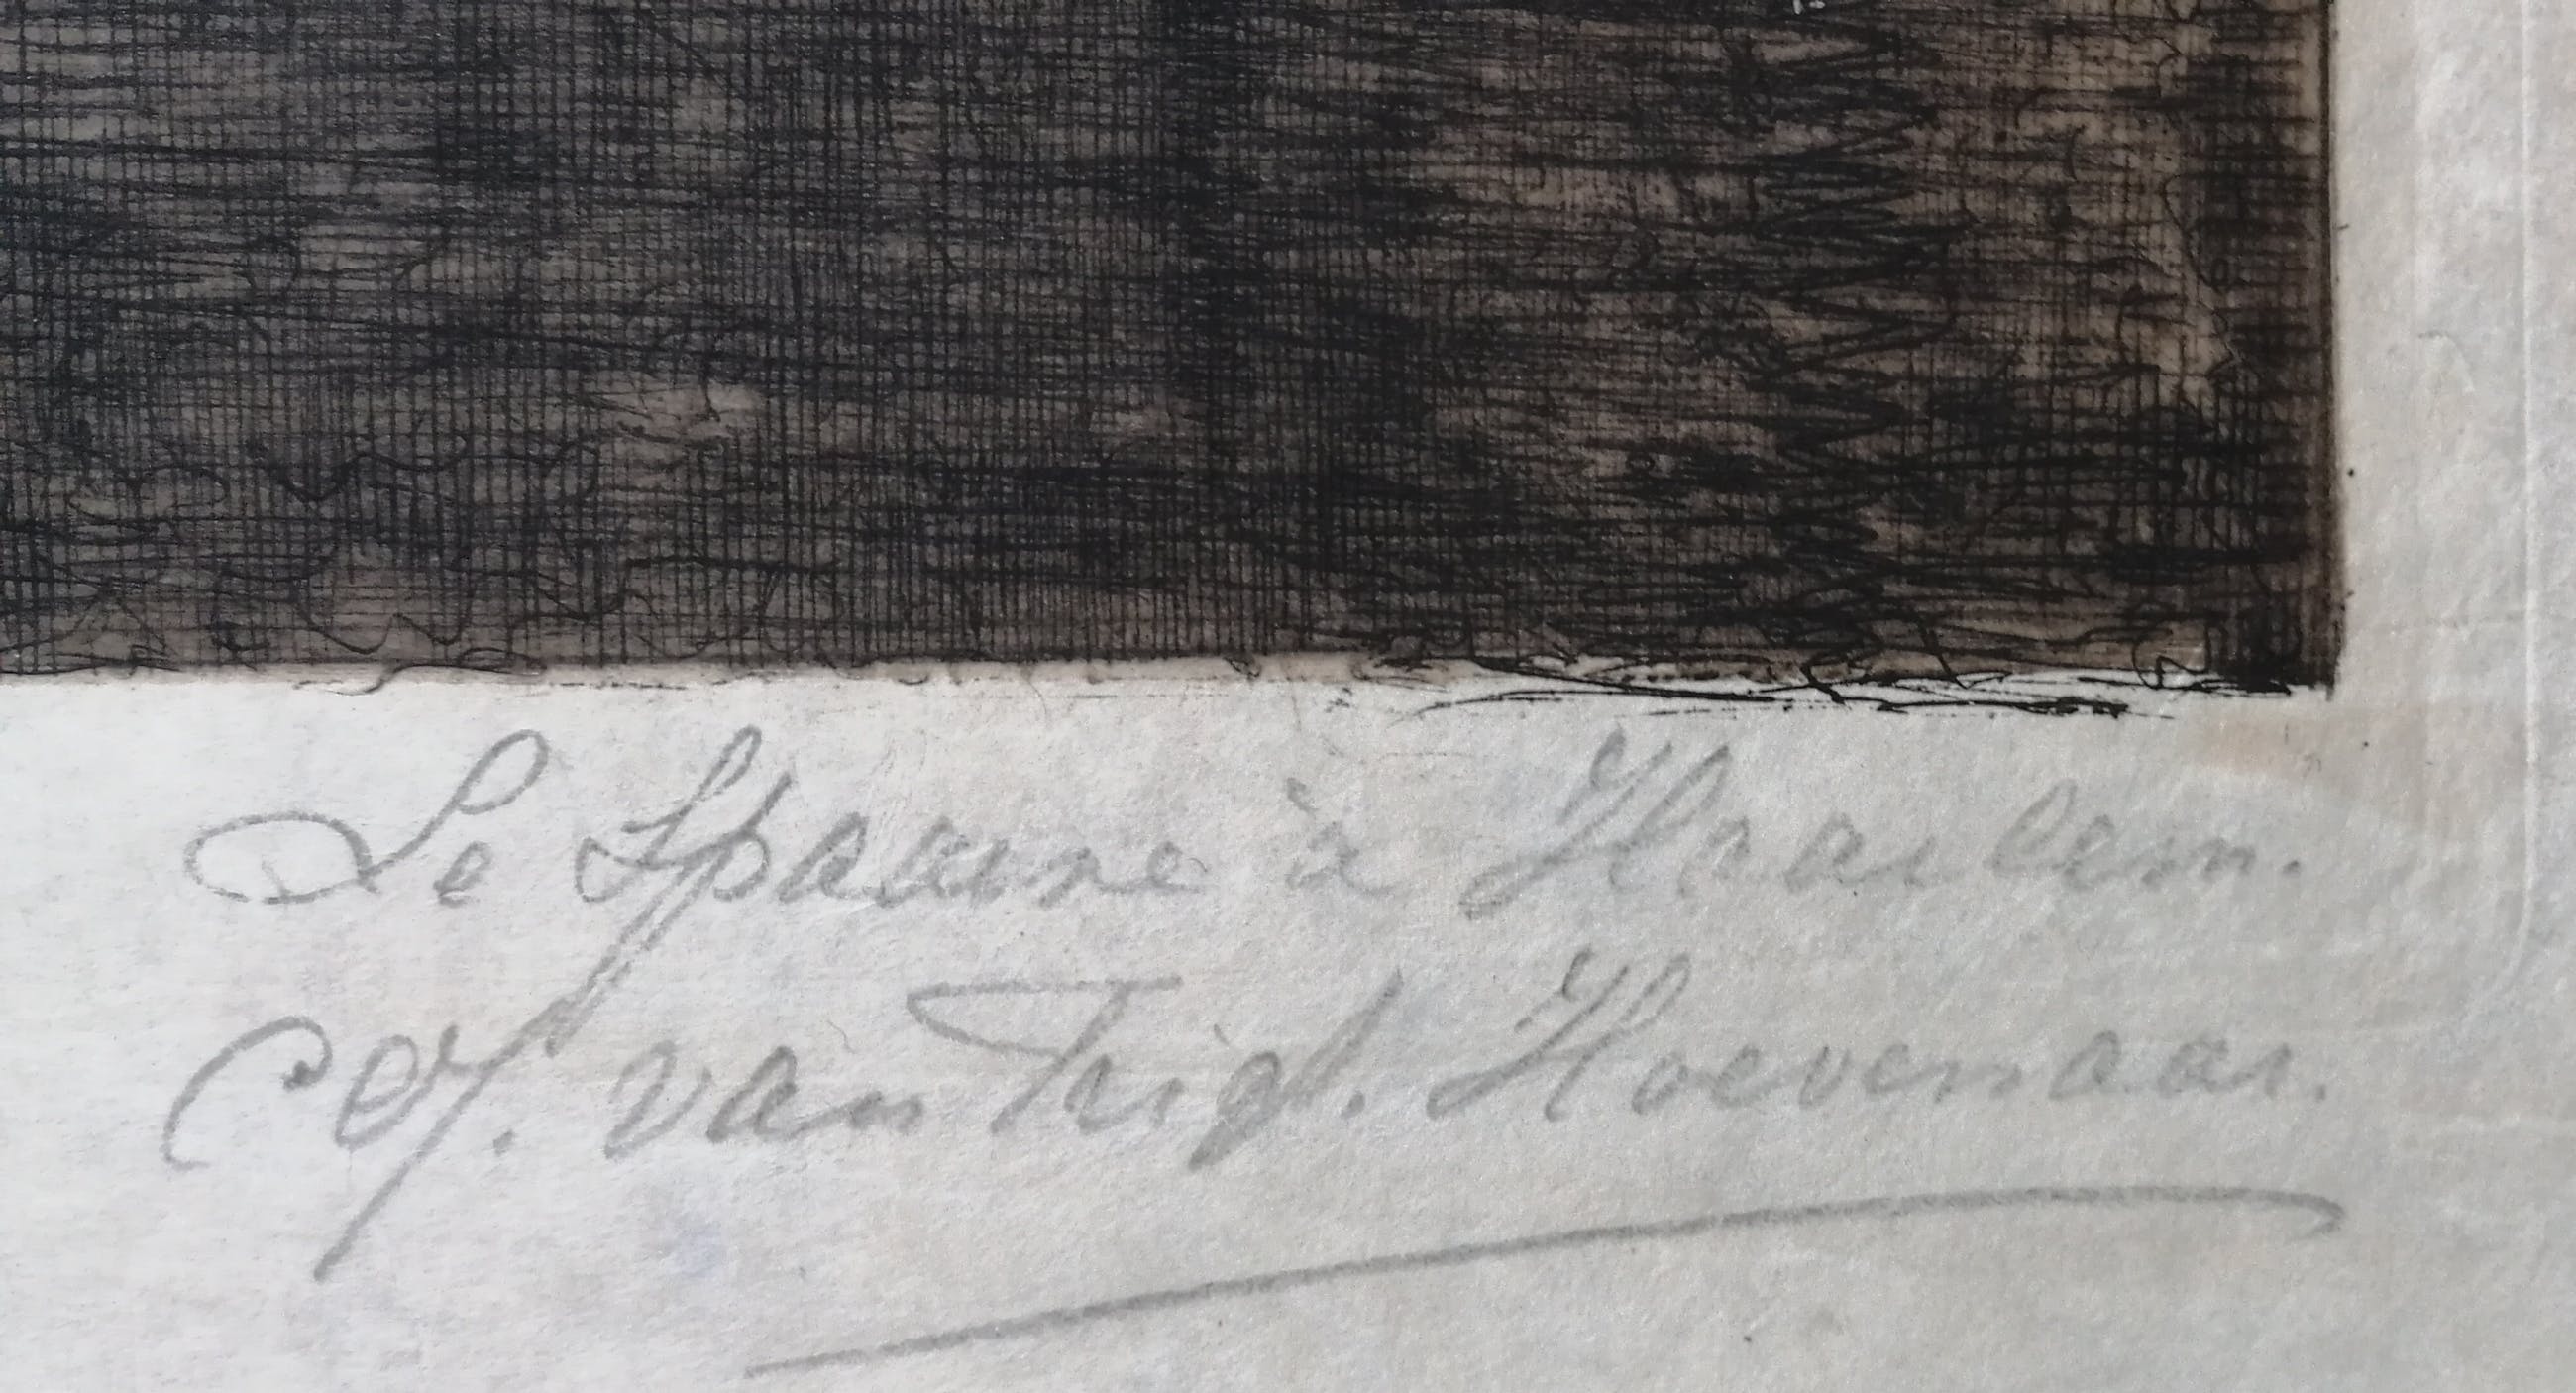 Le Spaarne à Haarlem.
van Trigt. Hoevenaar.